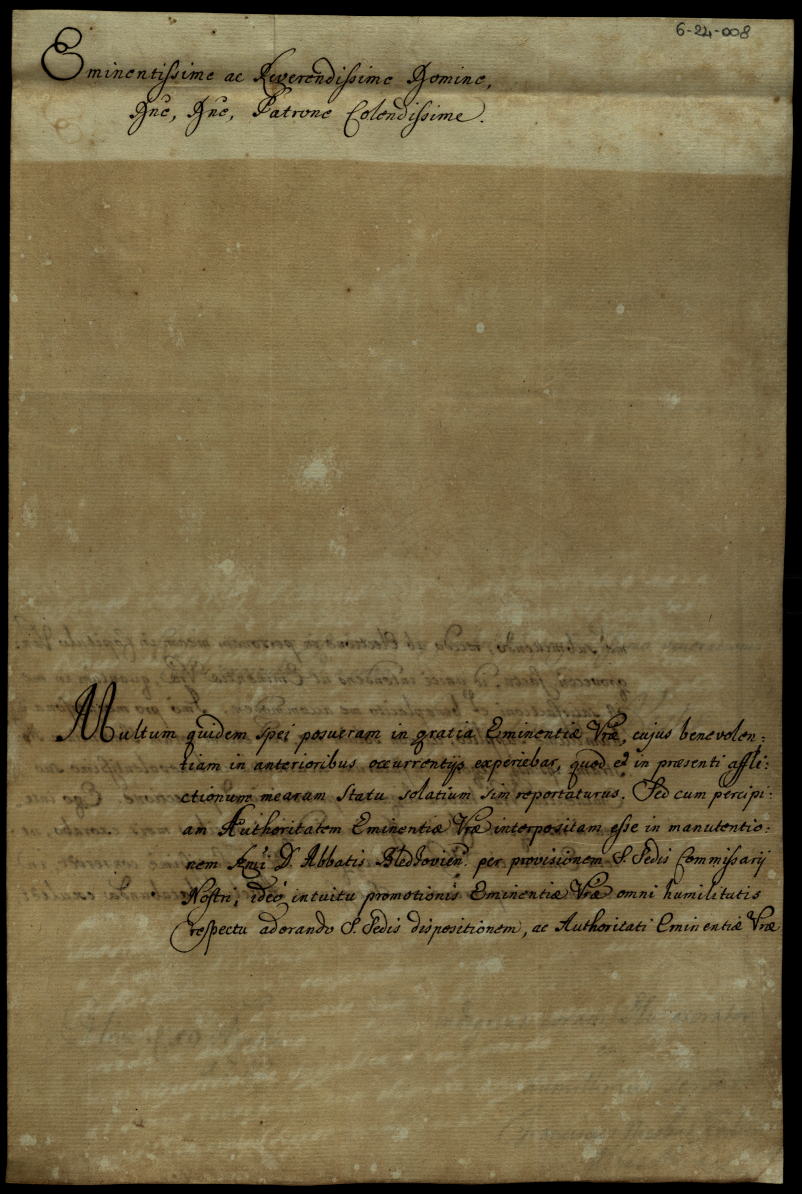 6-24-008
Eminentissime ac Reverendissime Domine,
Dne, Dne, Patrone Colendissime.
Multum quidem spei posueram in gratia Eminentiæ Vræ, cujus benevolen:
tiam in anterioribus occurrentijs experiebar, quod et in præsenti affli:
ctionum mearum statu solatium sim reportaturus. Sed cum percipi:
am Authoritatem Eminentiæ Vræ interpositam esse in manutentio:
nem D. Abbatis Bledzovien. per provisionem S. Sedis Commissarij
Nostri, ideo intuitu promotionis Eminentiæ Vræ omni humilitatis
respectu adorando S. Sedis dispositionem, ac Authoritati Eminentiæ Vræ